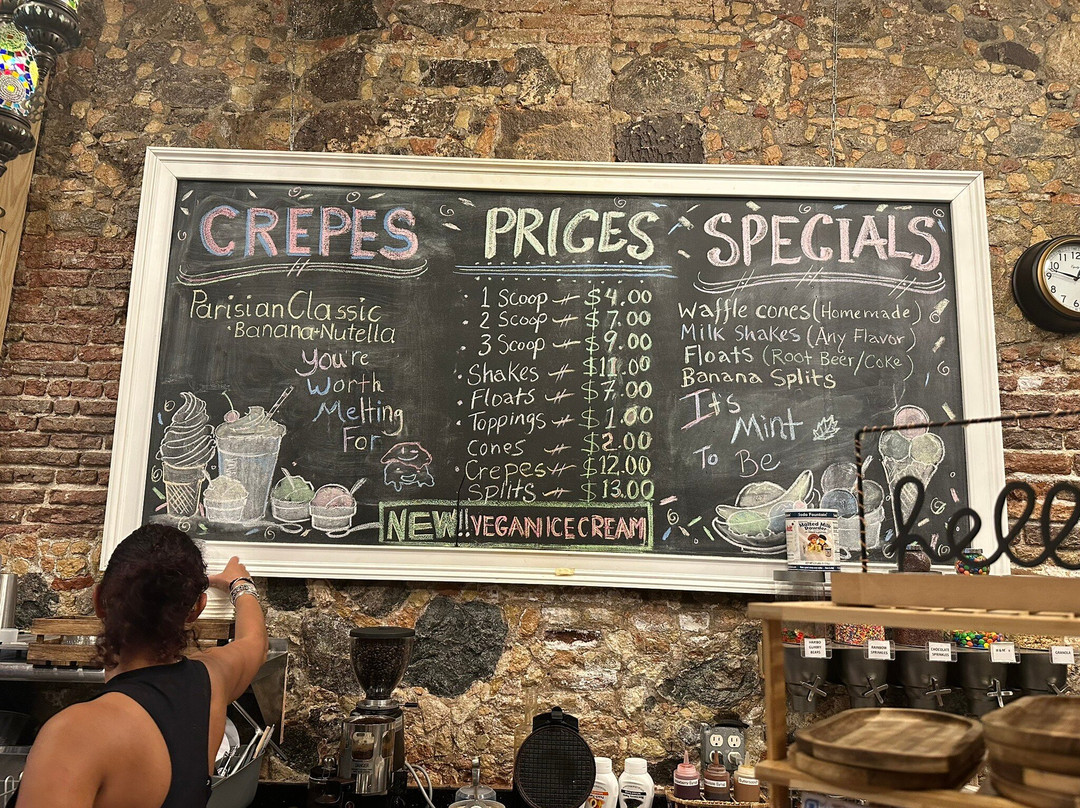 CREPES
Parisian Classic
• Banana + Nutella
You're
Worth
Melting
For
PRICES
• 1 Scoop $4.00
• 2 Scoop $7.00
3 Scoop $9.00
• Shakes $11.00
• Floats $7.00
• Toppings $1.00
Cones $2.00
• Crepes $12.00
Splits $13.00
NEW!! VEGAN ICE CREAM
SPECIALS
Waffle cones (Homemade)
Milk Shakes (Any Flavor)
Floats (Root Beer/Coke)
Banana Splits
It's
Mint
To Be
Soda Fountain
Malted Milk
Powder
hell
RAINBOW
SPRINKLES
CHOCOLATE
SPRINKLES
M & M
GRANOLA